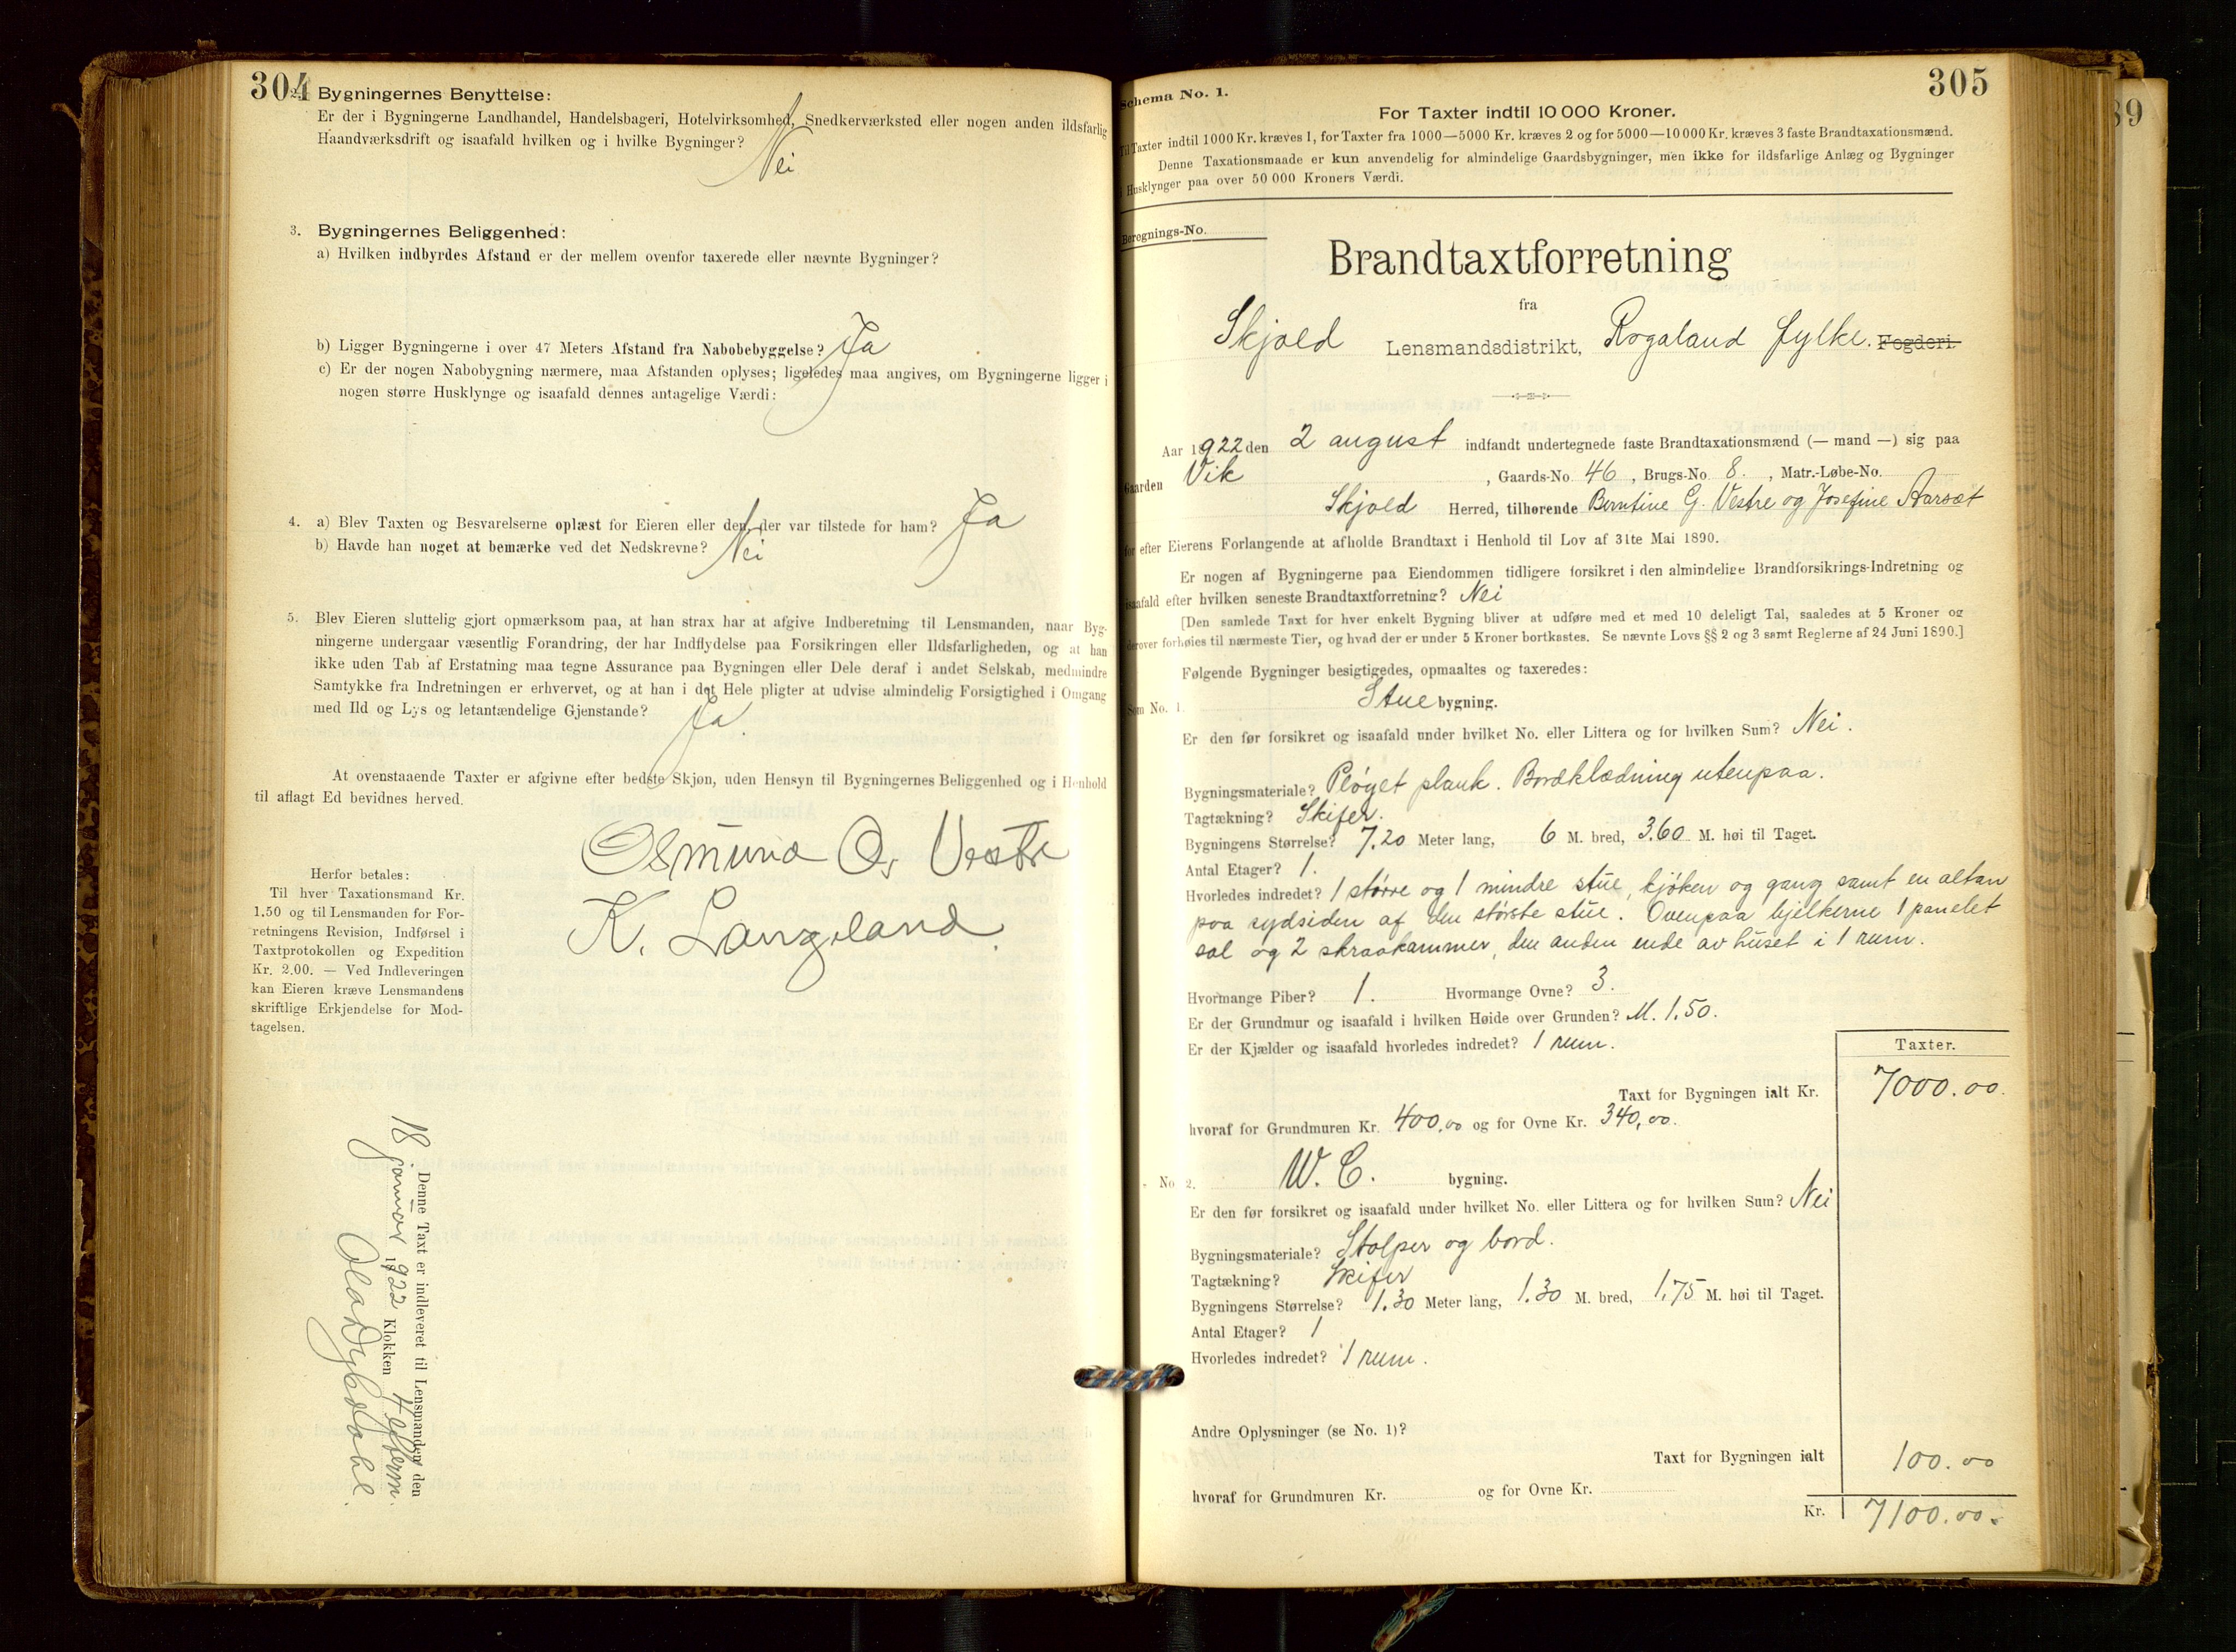 304
2. Bygningernes Benyttelse:
Er der i Bygningerne Landhandel, Handelsbageri, Hotelvirksomhed, Snedkerværksted eller nogen anden ildsfarlig
Haandværksdrift og isaafald hvilken og i hvilke Bygninger? Nei
3. Bygningernes Beliggenhed:
a) Hvilken indbyrdes Afstand er der mellem ovenfor taxerede eller nævnte Bygninger?
b) Ligger Bygningerne i over 47 Meters Afstand fra Nabobebyggelse? Ja
c) Er der nogen Nabobygning nærmere, maa Afstanden oplyses; ligeledes maa angives, om Bygningerne ligger i
nogen større Husklynge og isaafald dennes antagelige Værdi:
4. a) Blev Taxten og Besvarelserne oplæst for Eieren eller den, der var tilstede for ham? Ja
b) Havde han noget at bemærke ved det Nedskrevne? Nei
5. Blev Eieren sluttelig gjort opmærksom paa, at han strax har at afgive Indberetning til Lensmanden, naar Byg-
ningerne undergaar væsentlig Forandring, der har Indflydelse paa Forsikringen eller Ildsfarligheden, og at han
ikke uden Tab af Erstatning maa tegne Assurance paa Bygningen eller Dele deraf i andet Selskab, medmindre
Samtykke fra Indretningen er erhvervet, og at han i det Hele pligter at udvise almindelig Forsigtighed i Omgang
med Ild og Lys og letantændelige Gjenstande? Ja.
At ovenstaaende Taxter er afgivne efter bedste Skjøn, uden Hensyn til Bygningernes Beliggenhed og i Henhold
til aflagt Ed bevidnes herved.
Osmund O. Vestre
K. Langeland.
Herfor betales:
Til hver Taxationsmand Kr.
1.50 og til Lensmanden for For-
retningens Revision, Indførsel i
Taxtprotokollen og Expedition
Kr. 2.00. — Ved Indleveringen
kan Eieren kræve Lensmandens
skriftlige Erkjendelse for Mod-
tagelsen.
Denne Taxt er indleveret til Lensmanden den
18 januar 1922 Klokken 4 efterm.
305
Schema No. 1.
For Taxter indtil 10 000 Kroner.
Til Taxter indtil 1000 Kr. kræves 1, for Taxter fra 1000—5000 Kr. kræves 2 og for 5000—10 000 Kr. kræves 3 faste Brandtaxationsmænd.
Denne Taxationsmaade er kun anvendelig for almindelige Gaardsbygninger, men ikke for ildsfarlige Anlæg og Bygninger
i Husklynger paa over 50 000 Kroners Værdi.
Beregnings-No.
Brandtaxtforretning
fra
Skjold Lensmandsdistrikt, Rogaland fylke. Fogderi.
Aar 1922 den 2 august indfandt undertegnede faste Brandtaxationsmænd (— mand —) sig paa
Gaarden Vik , Gaards-No. 46 , Brugs-No. 8. , Matr.-Løbe-No.
Skjold Herred, tilhørende Berntine G. Vestre og Josefine Aarsæt
for efter Eierens Forlangende at afholde Brandtaxt i Henhold til Lov af 31te Mai 1890.
Er nogen af Bygningerne paa Eiendommen tidligere forsikret i den almindelige Brandforsikrings-Indretning og
isaafald efter hvilken seneste Brandtaxtforretning? Nei
[Den samlede Taxt for hver enkelt Bygning bliver at udføre med et med 10 deleligt Tal, saaledes at 5 Kroner og
derover forhøies til nærmeste Tier, og hvad der er under 5 Kroner bortkastes. Se nævnte Lovs §§ 2 og 3 samt Reglerne af 24 Juni 1890.]
Følgende Bygninger besigtigedes, opmaaltes og taxeredes:
Som No. 1. Stue bygning.
Er den før forsikret og isaafald under hvilket No. eller Littera og for hvilken Sum? Nei.
Bygningsmateriale? Pløyet plank. Bordklædning utenpaa.
Tagtækning? Skifer.
Bygningens Størrelse? 7,20 Meter lang, 6 M. bred, 3.60 M. høi til Taget.
Antal Etager? 1.
Hvorledes indredet? 1 større og 1 mindre stue, kjøken og gang samt en altan
paa sydsiden af den største stue. Ovenpaa bjelkerne 1 panelet
sal og 2 skraakammer, den anden ende av huset i 1 rum.
Hvormange Piber? 1. Hvormange Ovne? 3.
Er der Grundmur og isaafald i hvilken Høide over Grunden? M. 1.50.
Er der Kjælder og isaafald hvorledes indredet? 1 rum.
Taxter.
Taxt for Bygningen ialt Kr. 7000.00.
hvoraf for Grundmuren Kr. 400,00 og for Ovne Kr. 340,00.
- No. 2. W. C. bygning.
Er den før forsikret og isaafald under hvilket No. eller Littera og for hvilken Sum? Nei
Bygningsmateriale? Stolper og bord.
Tagtækning? Skifer
Bygningens Størrelse? 1.30 Meter lang, 1.30 M. bred, 1,75 M. høi til Taget.
Antal Etager? 1
Hvorledes indredet? 1 rum.
Andre Oplysninger (se No. 1)?
Taxt for Bygningen ialt 100.00
hvoraf for Grundmuren Kr. og for Ovne Kr.
Kr. 7100.00.
89